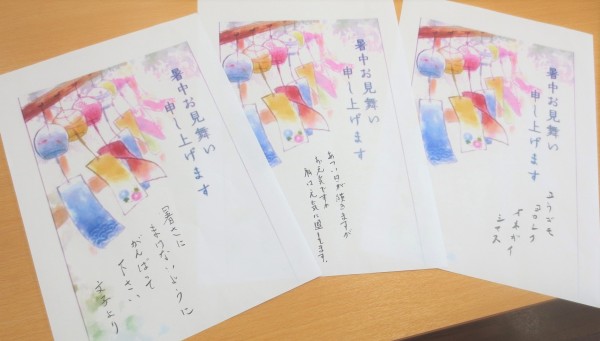 暑中お見舞い
申し上げます
暑さに
まけないように
がんばって
下さい
より
暑中お見舞い
申し上げます
あつい日が続きますが
お元気ですか
私は元気に過してます。
暑中お見舞い
申し上げます
ヨロシク
オネガイ
シマス